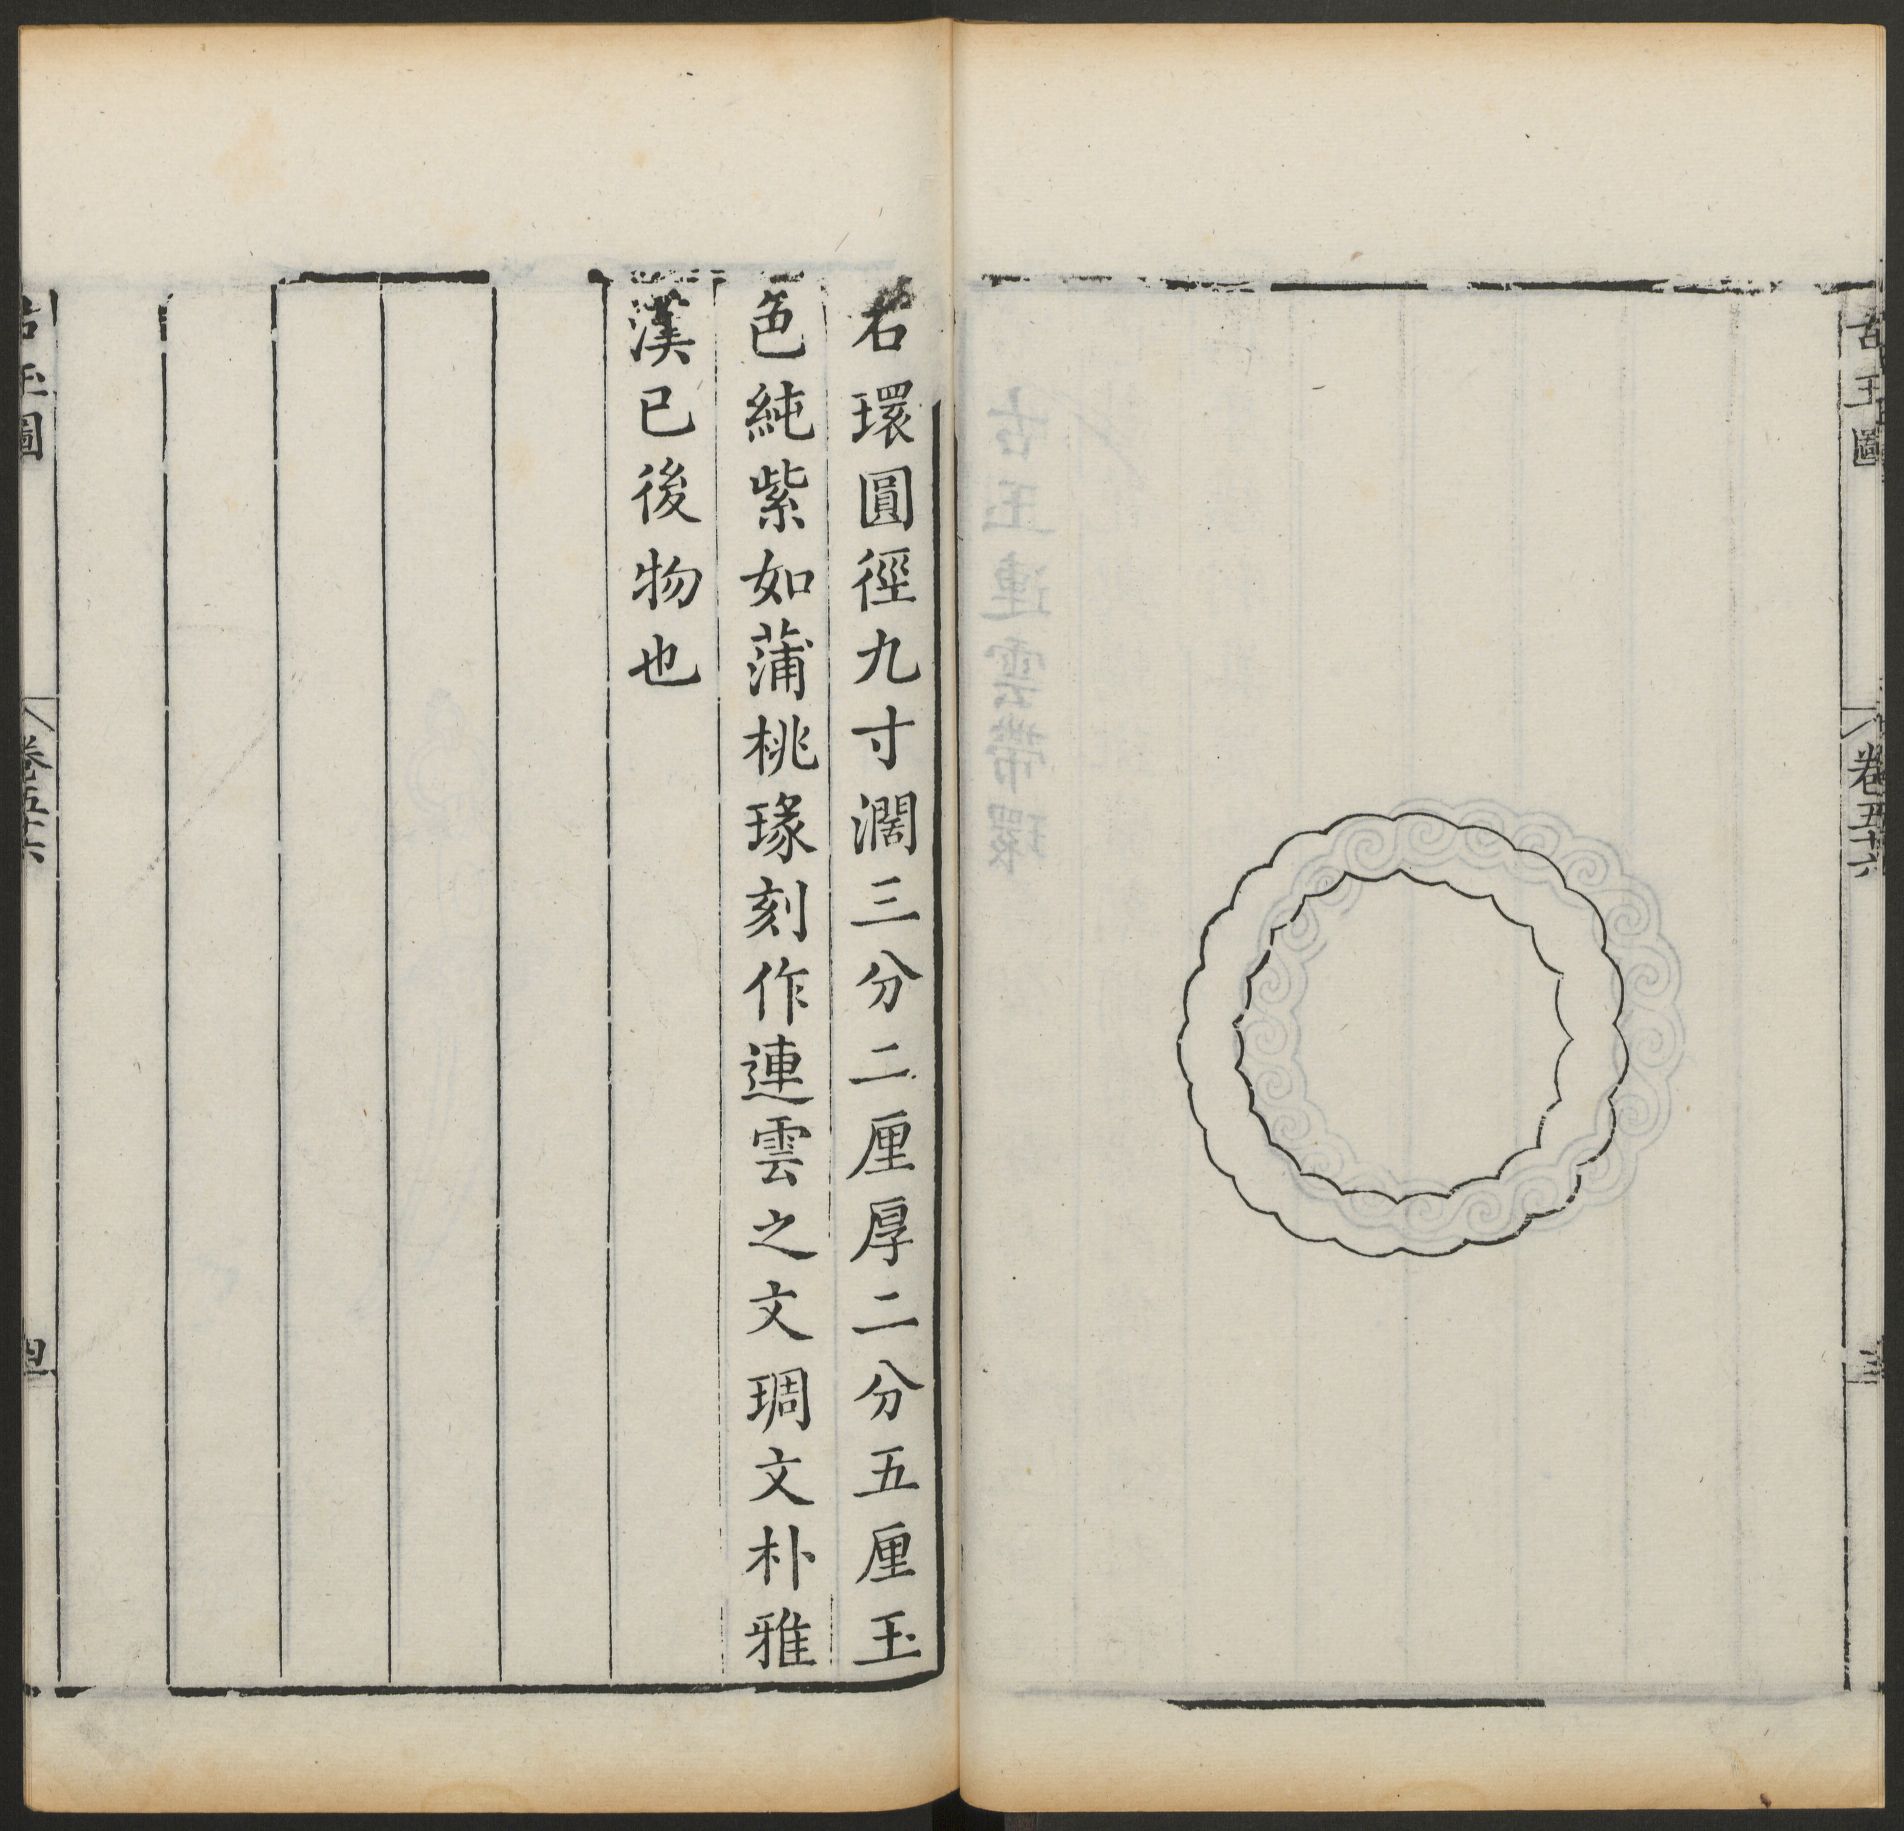 古玉圖
卷五十六
三
右環圓徑九寸濶三分二厘厚二分五厘玉
色純紫如蒲桃瑑刻作連雲之文琱文朴雅
漢已後物也
古玉圖
卷五十六
四